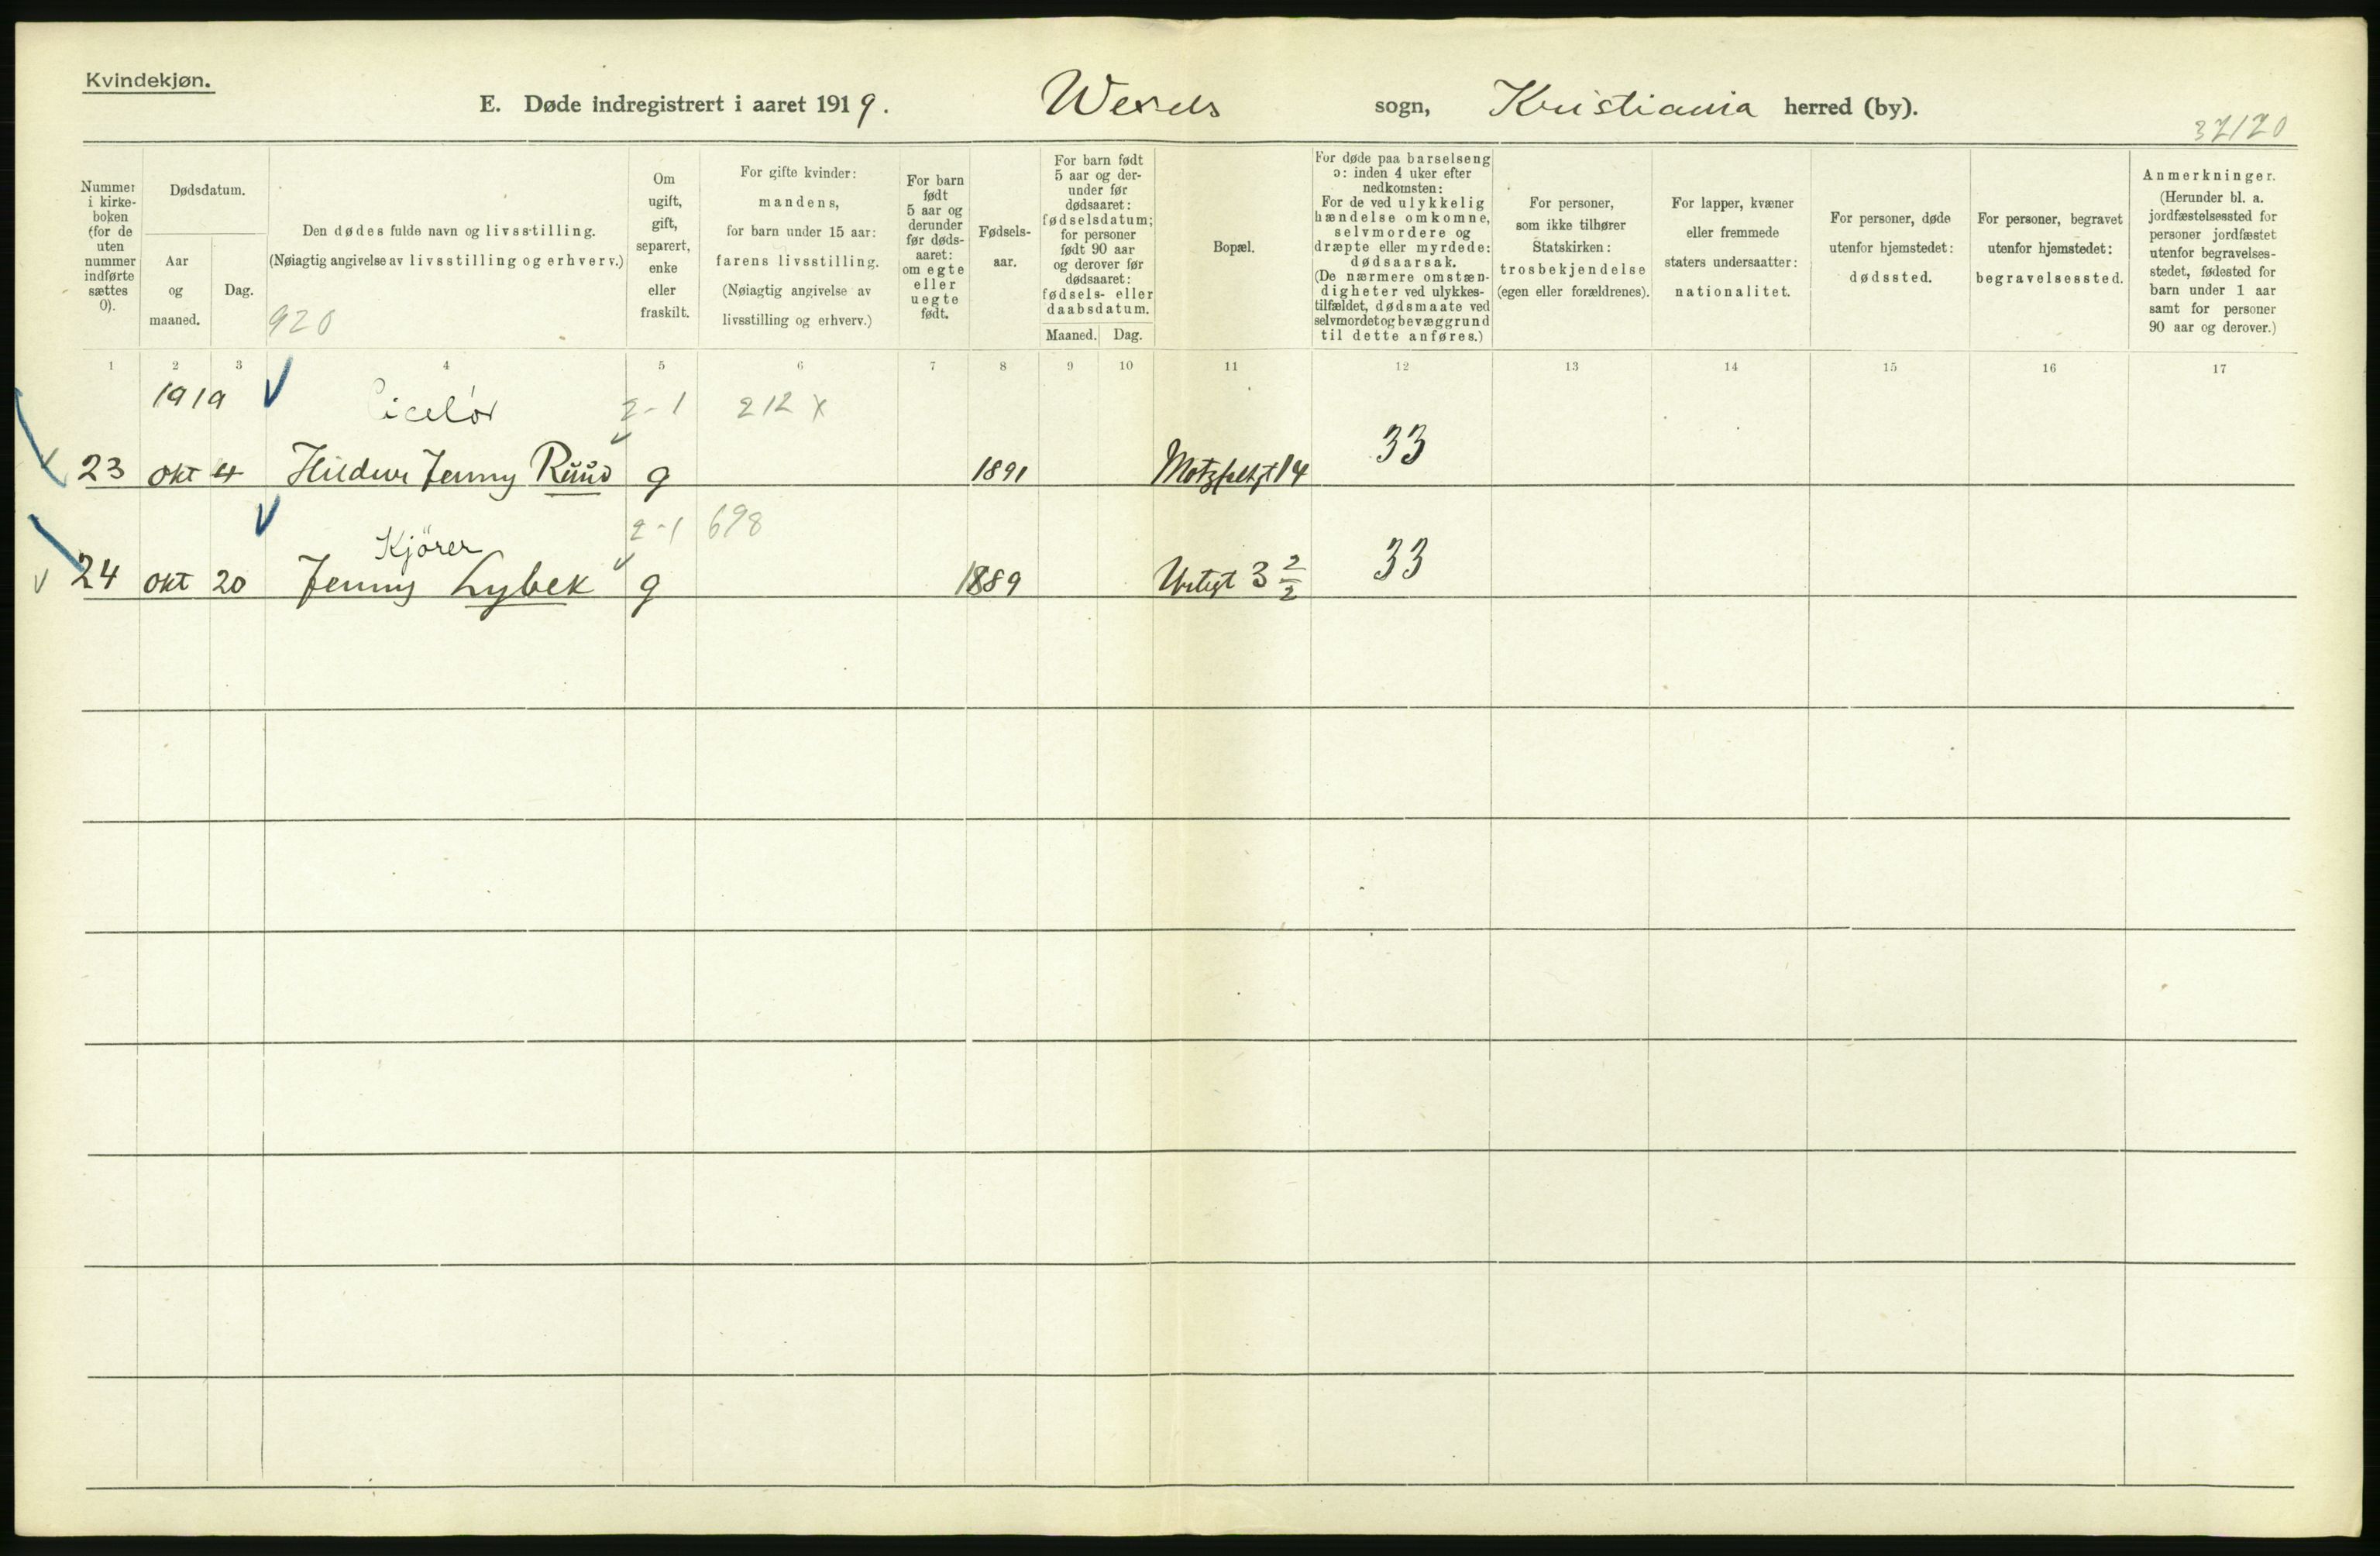 Kvindekjøn.
E. Døde indregistrert i aaret 1919. Wexels sogn, Kristiania herred (by).
32/20
Nummer i kirke-boken (for de uten nummer indførte sættes 0).
Dødsdatum.
Aar og maaned.
Dag.
Den dødes fulde navn og livsstilling.
(Nøiagtig angivelse av livsstilling og erhverv.)
920
Om ugift, gift, separert, enke eller fraskilt.
For gifte kvinder: mandens, for barn under 15 aar: farens livsstilling. (Nøiagtig angivelse av livsstilling og erhverv.)
For barn født 5 aar og derunder før døds-aaret: om egte eller uegte født.
Fødsels-aar.
For barn født 5 aar og der-under før dødsaaret: fødselsdatum; for personer født 90 aar og derover før dødsaaret: fødsels- eller daabsdatum.
Maaned. Dag.
Bopæl.
For døde paa barselseng ɔ: inden 4 uker efter nedkomsten: For de ved ulykkelig hændelse omkomne, selvmordere og dræpte eller myrdede: dødsaarsak. (De nærmere omstæn-digheter ved ulykkes-tilfældet, dødsmaate ved selvmordet og bevæggrund til dette anføres.)
For personer, som ikke tilhører Statskirken: trosbekjendelse (egen eller forældrenes).
For lapper, kvæner eller fremmede staters undersaatter: nationalitet.
For personer, døde utenfor hjemstedet: dødssted.
For personer, begravet utenfor hjemstedet: begravelsessted.
Anmerkninger. (Herunder bl. a. jordfæstelsessted for personer jordfæstet utenfor begravelses-stedet, fødested for barn under 1 aar samt for personer 90 aar og derover.)
1 2 3 4 5 6 7 8 9 10 11 12 13 14 15 16 17
1919 2-1 212 x
23 okt 4 Hildur Jenny Ruud g 1891 Motzfeltgt 14 33
Kjörer 2-1 698
24 okt 20 Jenny Lybek g 1889 Urtegt 3 2/2 33